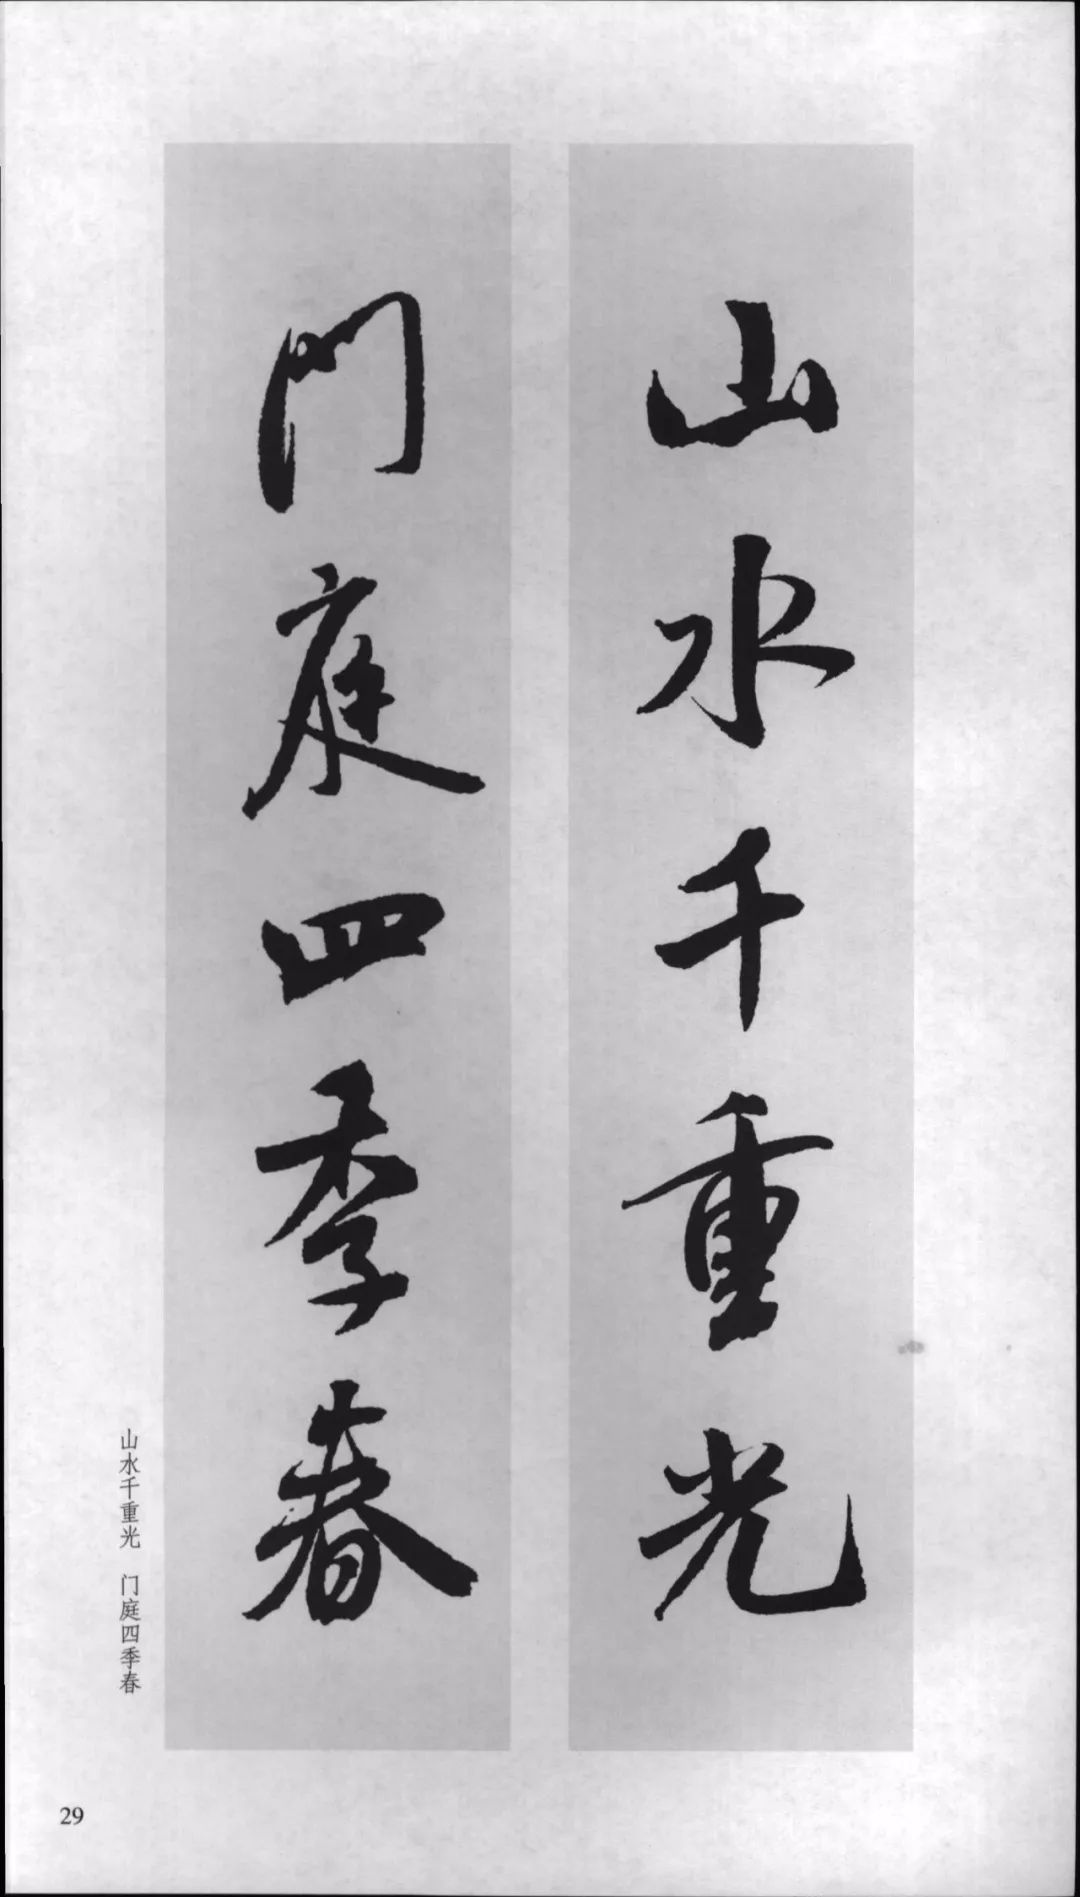 山水千重光
门庭四季春
山水千重光　门庭四季春
29